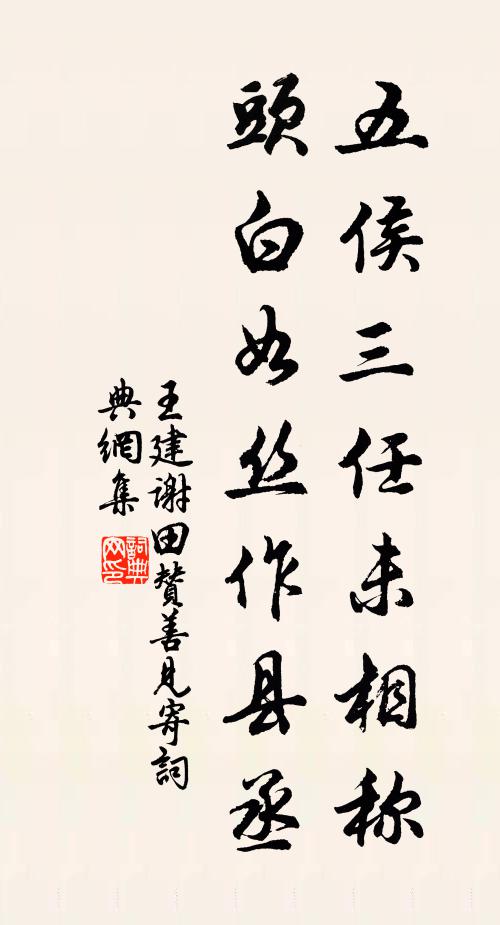 五侯三任未相称
頭白如丝作县丞
王建谢田赞善见寄词
典網集
詞典网印